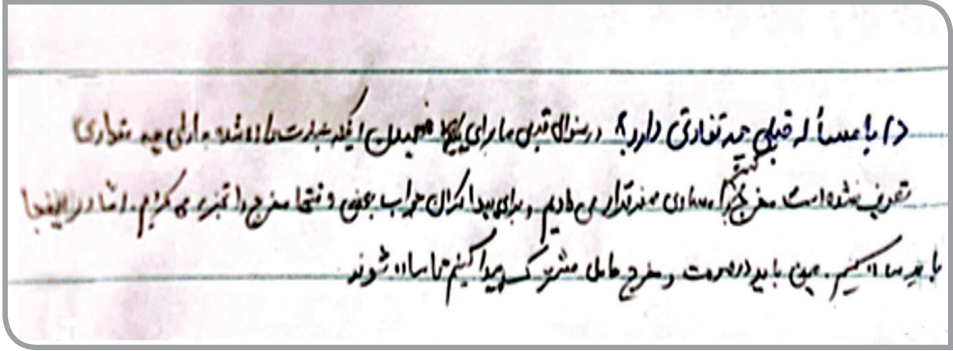 د) با مسأله قبلی چه تفاوتی دارد؟ در سوال قبلی ما برای فهمیدن اینکه عبارت داده شده به ازای چه مقداری
تعریف نشده است مخرج کسر را مساوی صفر قرار می دادیم و برای پیدا کردن جواب یعنی فقط مخرج را تجزیه می کردیم. اما در اینجا
باید ساده کنیم. یعنی باید در صورت و مخرج عامل مشترک پیدا کنیم تا ساده شوند